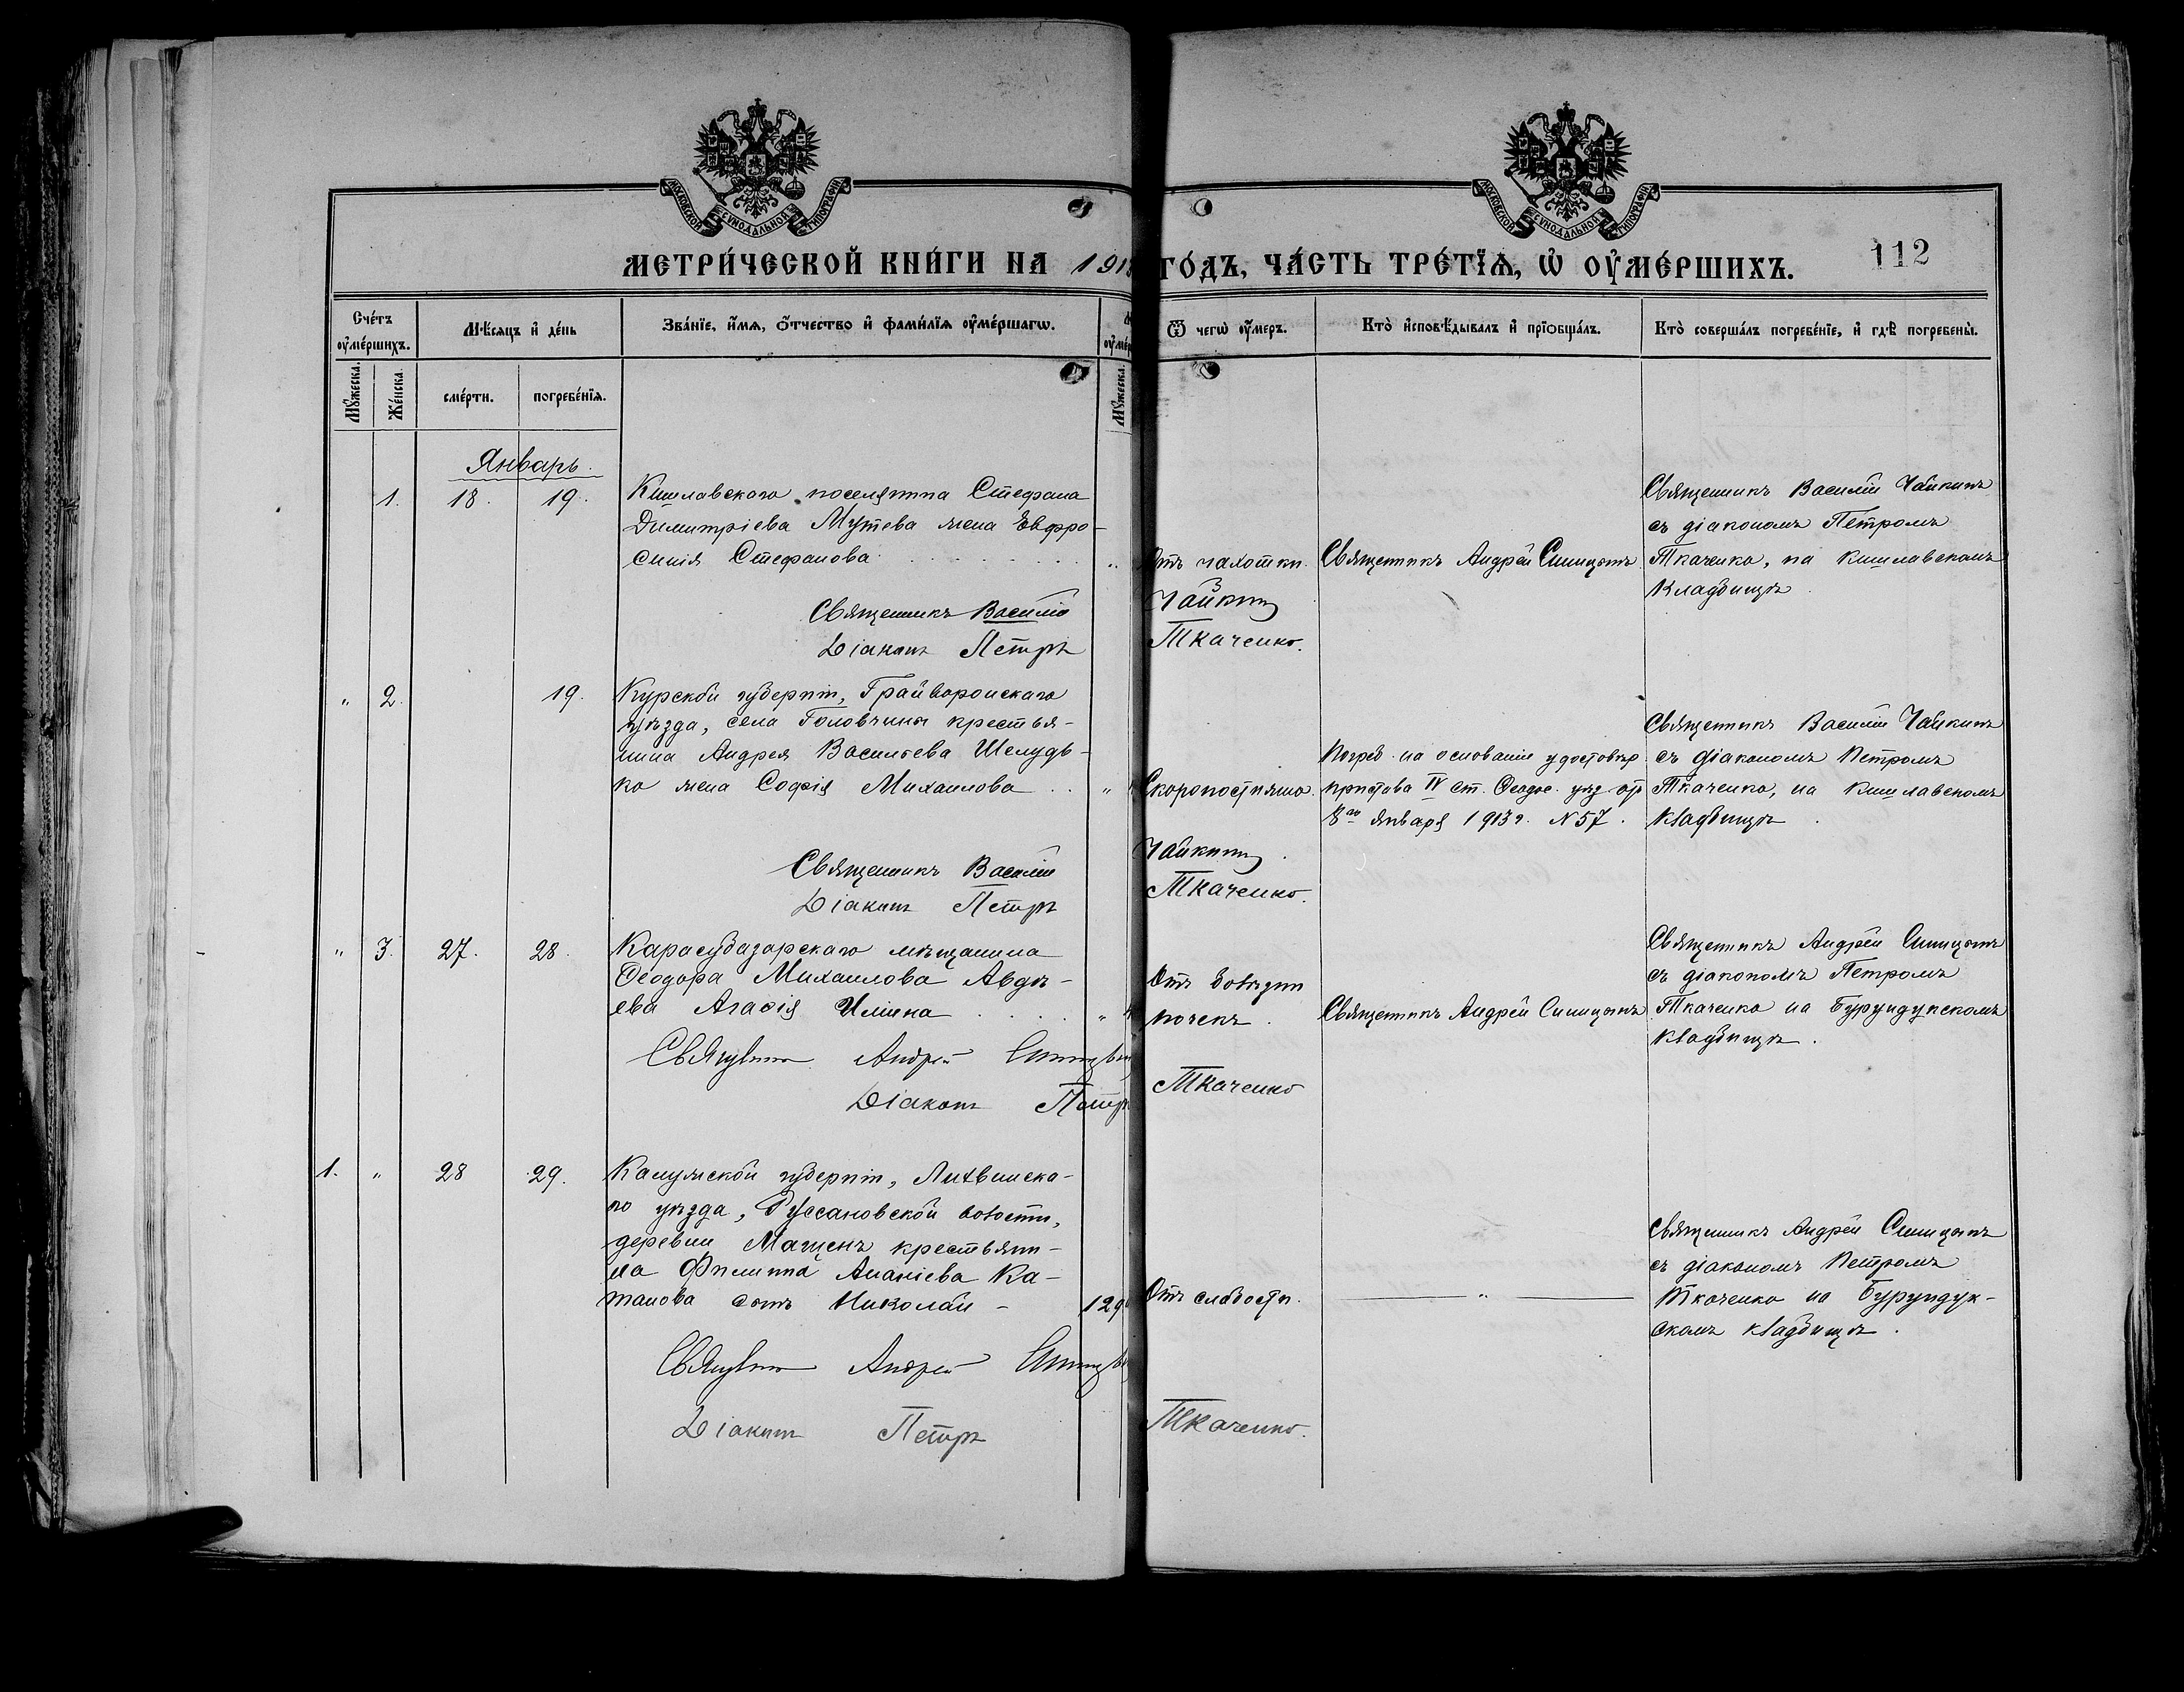 МОСКОВСКОЙ СѴНОДАЛЬНОЙ ТИПОГРАФІИ
МОСКОВСКОЙ СѴНОДАЛЬНОЙ ТИПОГРАФІИ
МЕТРИ́ЧЕСКОЙ КНИ́ГИ НА 191
ГО́ДЪ, ЧА́СТЬ ТРЕ́ТЇѦ, Ѡ҆ ОУ҆МЕ́РШИХЪ.
112
Сче́тъ оу҆ме́ршихъ.
Мѣ́сяцъ и҆ де́нь
Зва́нїе, и҆́мѧ, ѻ҆́тчество и҆ фами́лїѧ оу҆ме́ршагѡ.
Ѿ чегѡ̀ оу҆́меръ.
Кто̀ и҆сповѣ́дывалъ и҆ прїѻбща́лъ.
Кто̀ соверша́лъ погребе́нїе, и҆ гдѣ̀ погребены̀.
Мꙋ́жеска.
Же́нска.
сме́рти.
погребе́нїѧ.
Мꙋ́жеска.
Январь.
1. 18. 19.
Кишлавскаго поселянина Стефана
Димитріева Мутева жена Евфро-
синія Стефанова
Отъ чахотки.
Священникъ Андрей Синицынъ
Священникъ Василій Чайкинъ
съ діакономъ Петромъ
Ткаченко, на Кишлавскомъ
кладбищѣ
Священникъ Василій Чайкинъ
Діаконъ Петръ Ткаченко.
" 2. 19.
Курской губерніи, Грайворонскаго
уѣзда, села Головчины крестья-
нина Андрея Васильева Шелудь-
ко жена Софія Михаилова
Скоропостижно.
Погреб. на основаніи удостовѣр.
пристава IV ст. Ѳеодос. уѣз. от
8го января 1913г. N57.
Священникъ Василій Чайкинъ
съ діакономъ Петромъ
Ткаченко, на Кишлавскомъ
кладбищѣ
Священникъ Василій Чайкинъ
Діаконъ Петръ Ткаченко.
" 3. 27. 28.
Карасубазарскаго мѣщанина
Ѳеодора Михаилова Авдѣ-
ева Агафія Ильина
Отъ болѣзни
почекъ.
Священникъ Андрей Синицынъ
Священникъ Андрей Синицынъ
съ діакономъ Петромъ
Ткаченко на Бурундукскомъ
кладбищѣ.
Священникъ Андрей Синицынъ
Діаконъ Петръ Ткаченко
1. " 28 29.
Калужской губерніи, Лихвинска-
го уѣзда, Руссановской волости,
деревни Мащенъ крестьяни-
на Филиппа Ананіева Ка-
танова сынъ Николай -
Отъ слабости.
"
Священникъ Андрей Синицынъ
съ діакономъ Петромъ
Ткаченко на Бурундук-
скомъ кладбищѣ.
Священникъ Андрей Синицынъ
Діаконъ Петръ Ткаченко.